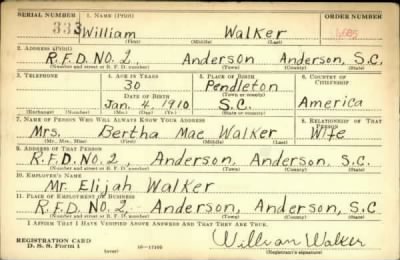 SERIAL NUMBER 1. NAME (Print) ORDER NUMBER
333 William Walker
(First) (Middle) (Last)
2. ADDRESS (Print)
R.F.D. No. 2, Anderson Anderson, S.C.
(Number and street or R. F. D. number) (Town) (County) (State)
3. TELEPHONE 4. AGE IN YEARS 5. PLACE OF BIRTH 6. COUNTRY OF CITIZENSHIP
30 Pendleton
DATE OF BIRTH (Town or county)
Jan. 4, 1910 S.C. America
(Exchange) (Number) (Mo.) (Day) (Yr.) (State or country)
7. NAME OF PERSON WHO WILL ALWAYS KNOW YOUR ADDRESS 8. RELATIONSHIP OF THAT PERSON
Mrs. Bertha Mae Walker Wife
(Mr., Mrs., Miss) (First) (Middle) (Last)
9. ADDRESS OF THAT PERSON
R.F.D. No. 2, Anderson, Anderson, S.C.
(Number and street or R. F. D. number) (Town) (County) (State)
10. EMPLOYER'S NAME
Mr. Elijah Walker
11. PLACE OF EMPLOYMENT OR BUSINESS
R.F.D. No. 2, Anderson, Anderson, S.C
(Number and street or R. F. D. number) (Town) (County) (State)
I AFFIRM THAT I HAVE VERIFIED ABOVE ANSWERS AND THAT THEY ARE TRUE.
REGISTRATION CARD
D. S. S. Form 1 (over) 16—17105 William Walker
(Registrant's signature)